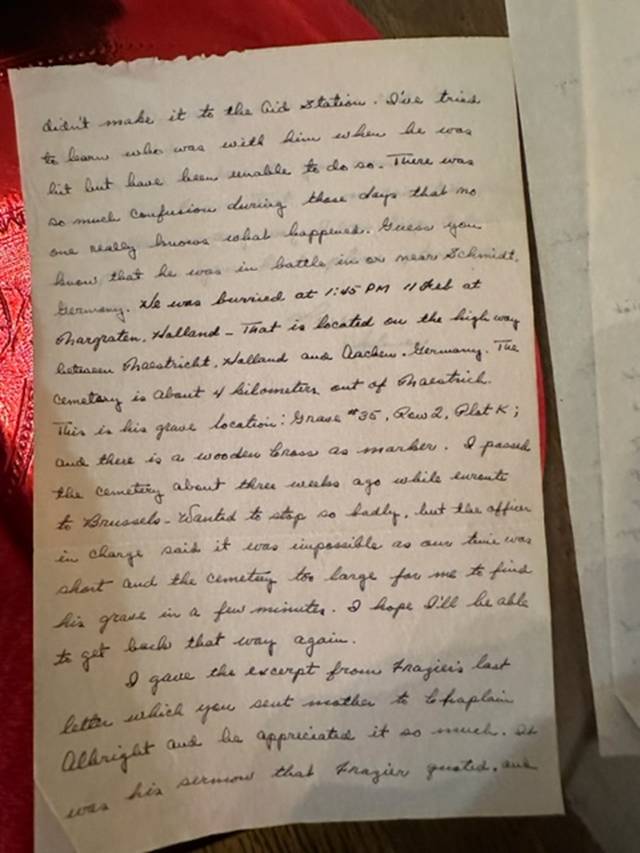 didn't make it to the Aid Station. I've tried
to learn who was with him when he was
hit but have been unable to do so. There was
so much confusion during those days that no
one really knows what happened. Guess you
know that he was in battle in or near Schmidt,
Germany. He was burried at 1:45 PM 11 Feb at
Margraten, Holland - That is located on the highway
between Maestricht, Holland and Aachen, Germany. The
cemetery is about 4 kilometers out of Maestrich.
This is his grave location: Grave #35, Row 2, Plot K;
and there is a wooden Cross as marker. I passed
the cemetery about three weeks ago while enroute
to Brussels - Wanted to stop so badly, but the officer
in charge said it was impossible as our time was
short and the cemetery too large for me to find
his grave in a few minutes. I hope I'll be able
to get back that way again.
I gave the excerpt from Frazier's last
letter which you sent mother to Chaplain
Albright and he appreciated it so much. It
was his sermon that Frazier quoted, and